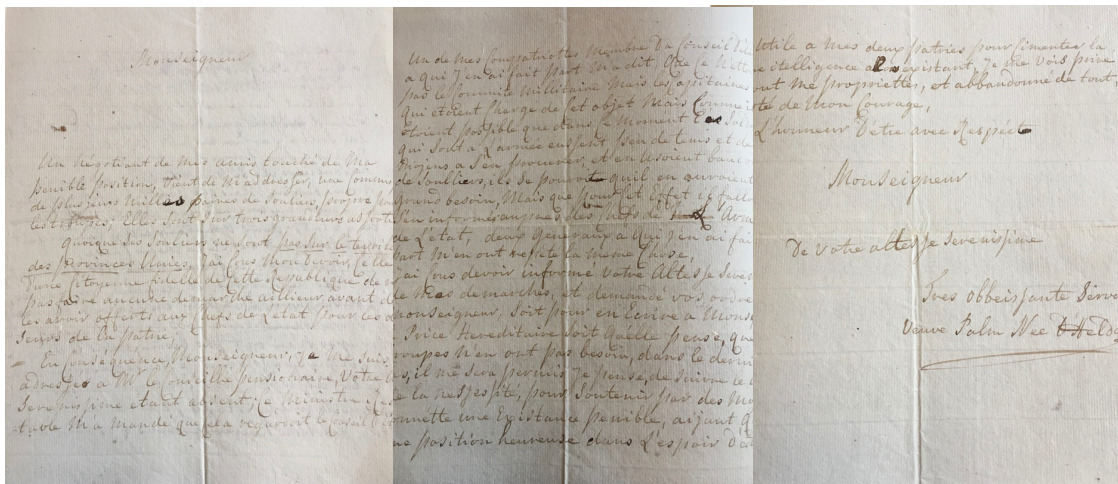 Monseigneur
Un Négotient de mes amis touché de Ma
penible position, vient de M'adresser, une Commis
de plusieurs Milles paires de Souliers, propre pou
les troupes, Elles sont sur trois grandeurs assortie
quoique ses Souliers ne sont pas sur le territ
des provinces Unies, j'ai Crus Mon Devoir
D'une Citoyenne fidelle de Cette Republique de n
pas faire aucune demarche ailleur, avant d
les avoir offerts aux chefs de L'etat pour les
seurs de la patrie,
En Conséquence, Monseigneur, je me suis
adresser a Mr le Conseillé pensionaire, Votre
Serenissime etant absent; Ce Ministre
M'a mandé que Cela regardoit le Conseil d'é
Un de mes Compatriottes Membre Du Conseil D'é
a qui J'en ai fait part M'a dit, Que Ce N'ette
pas le Commité Millitaire Mais les Capitaines
Qui etoient Charge de Cet objet Mais Comme i
etoient possible que dans Ce Moment Les Sol
qui sont a L'armée eussent peu de tems et de
Mojens a S'en procurer, et en Usoient bauc
de Souliers, ils Se pouvoit quil en auroient
grand besoin, Mais que pour Cet Effet il fallo
s'en informér aupres des chefs de L'Arm
de L'état, deux Generaux a Qui J'en ai fai
part M'en ont repete la même Chose,
j'ai Crus devoir informé Votre Altesse Seren
de Mes demarches, et demandé vos ordre
Monseigneur, Soit pour en Ecrire a Mons
Price Hereditaire Soit Quelle pense, que
troupes N'en ont pas besoin, dans le derni
s, il me sera permis Je pense, de Suivre le
e la Nessessité, pour Soutenir par des Mo
onnette une Existance penible, aijant
ne position heureuse dans L'espoir D'e
Utile a Mes deux patries pour Cimenter la
e itelligence existant, Je me Vois prive
out Me proprietter, et abbandonné de tout
té de Mon Courage,
L'honneur D'être avec Respécte
Monseigneur
De Votre altesse Serenissime
Tres obbeissante Serv
Veuve Palm Née D'Aeld